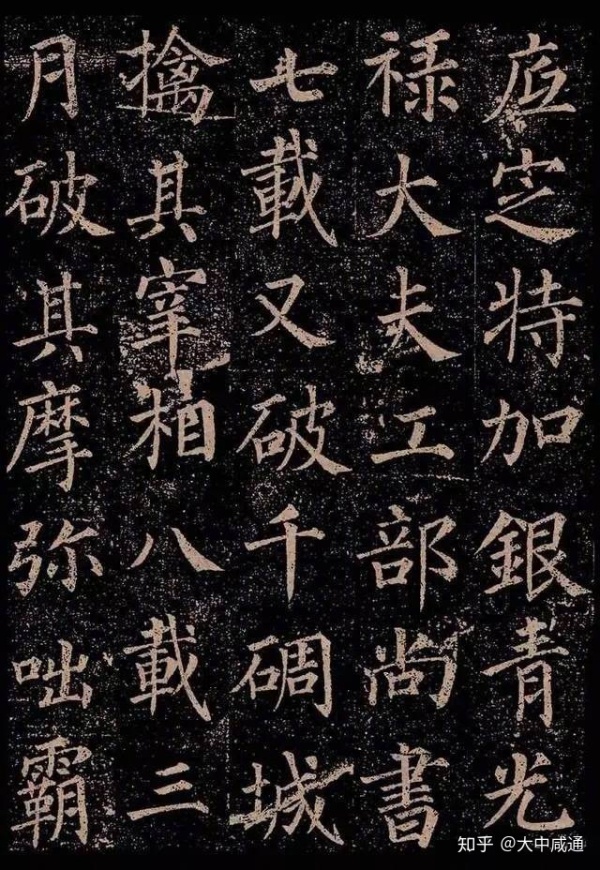 底㝎特加銀青光
禄大夫工部尚書
七載又破千碉城
擒其宰相八載三
月破其摩弥咄霸
知乎 @大中咸通